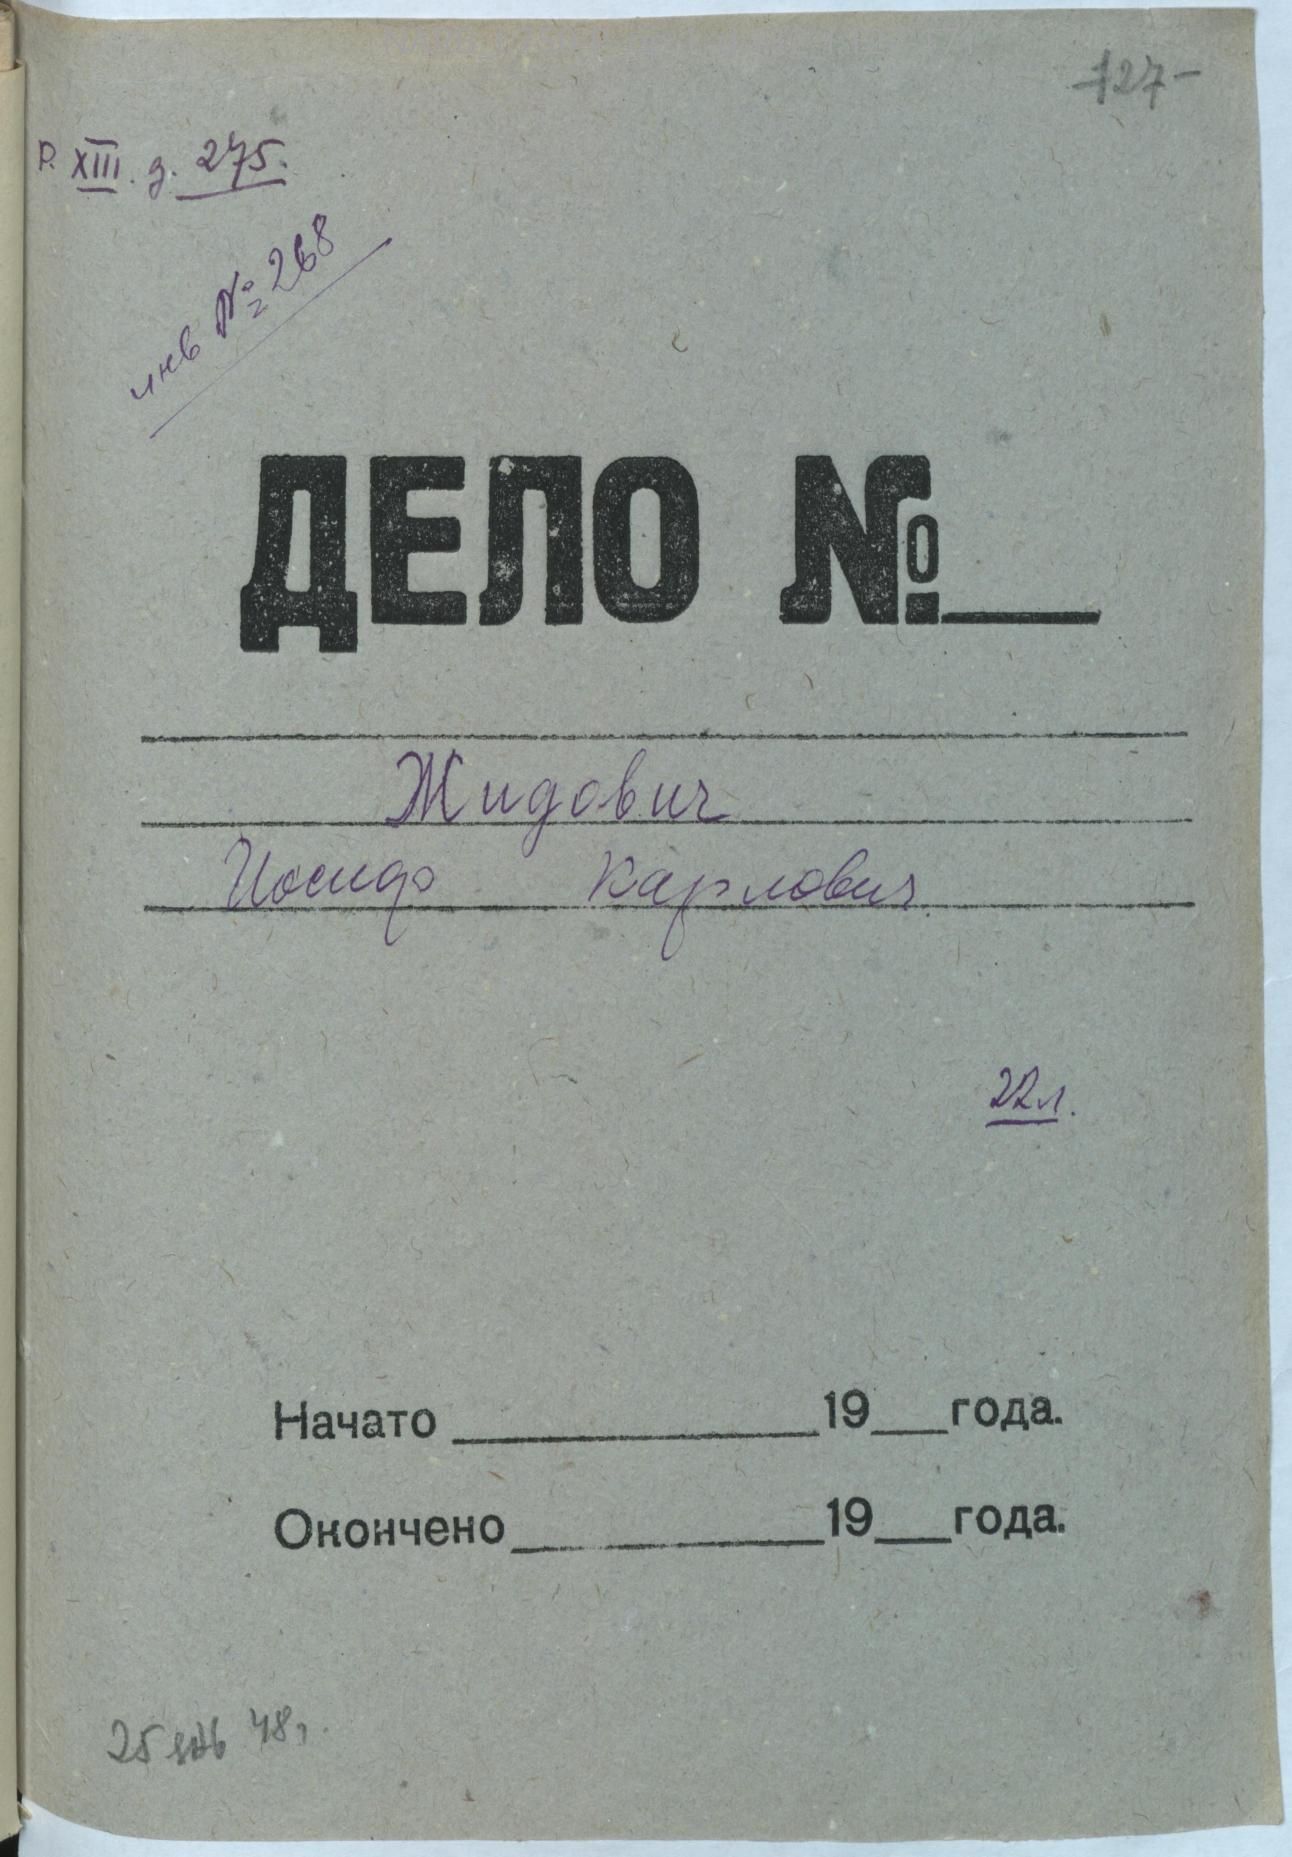 127-
Р. XIII. д. 275.
инв № 268
ДЕЛО №
Жидович
Иосиф Карлович
22 л.
Начато 19 года.
Окончено 19 года.
25 янв 48 г.